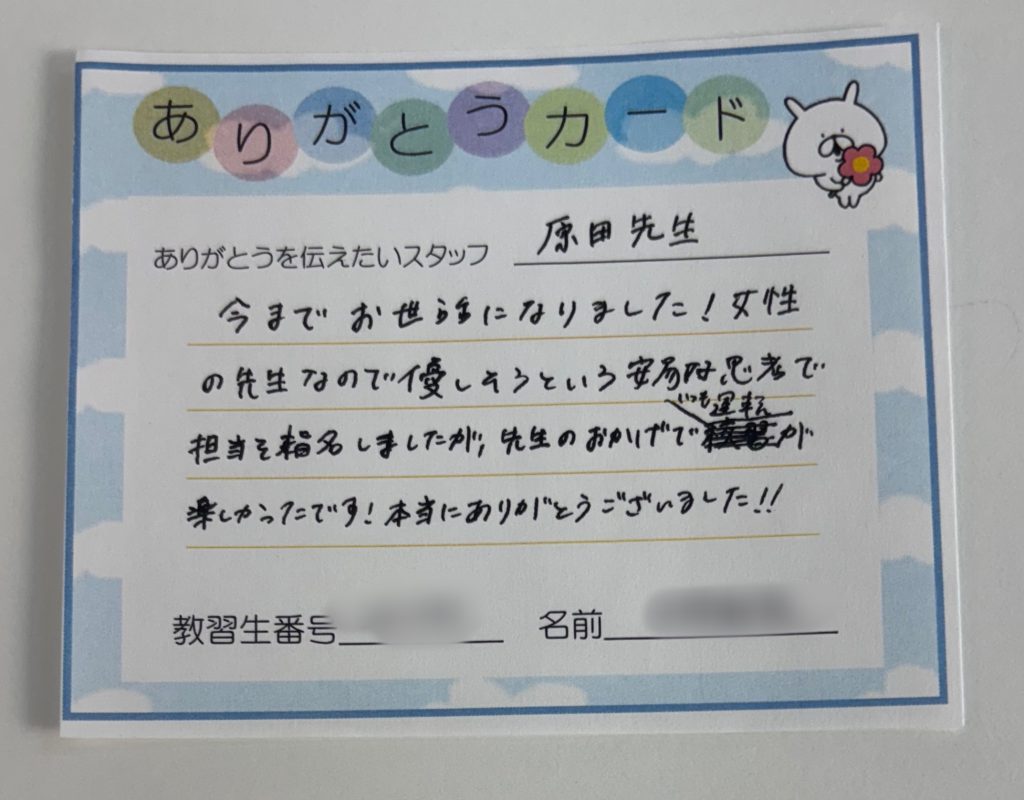 ありがとうカード
ありがとうを伝えたいスタッフ 原田先生
今までお世話になりました！女性
の先生なので優しそうという安易な思考で
いつも運転
担当を指名しましたが、先生のおかげで が
楽しかったです！本当にありがとうございました!!
教習生番号 名前